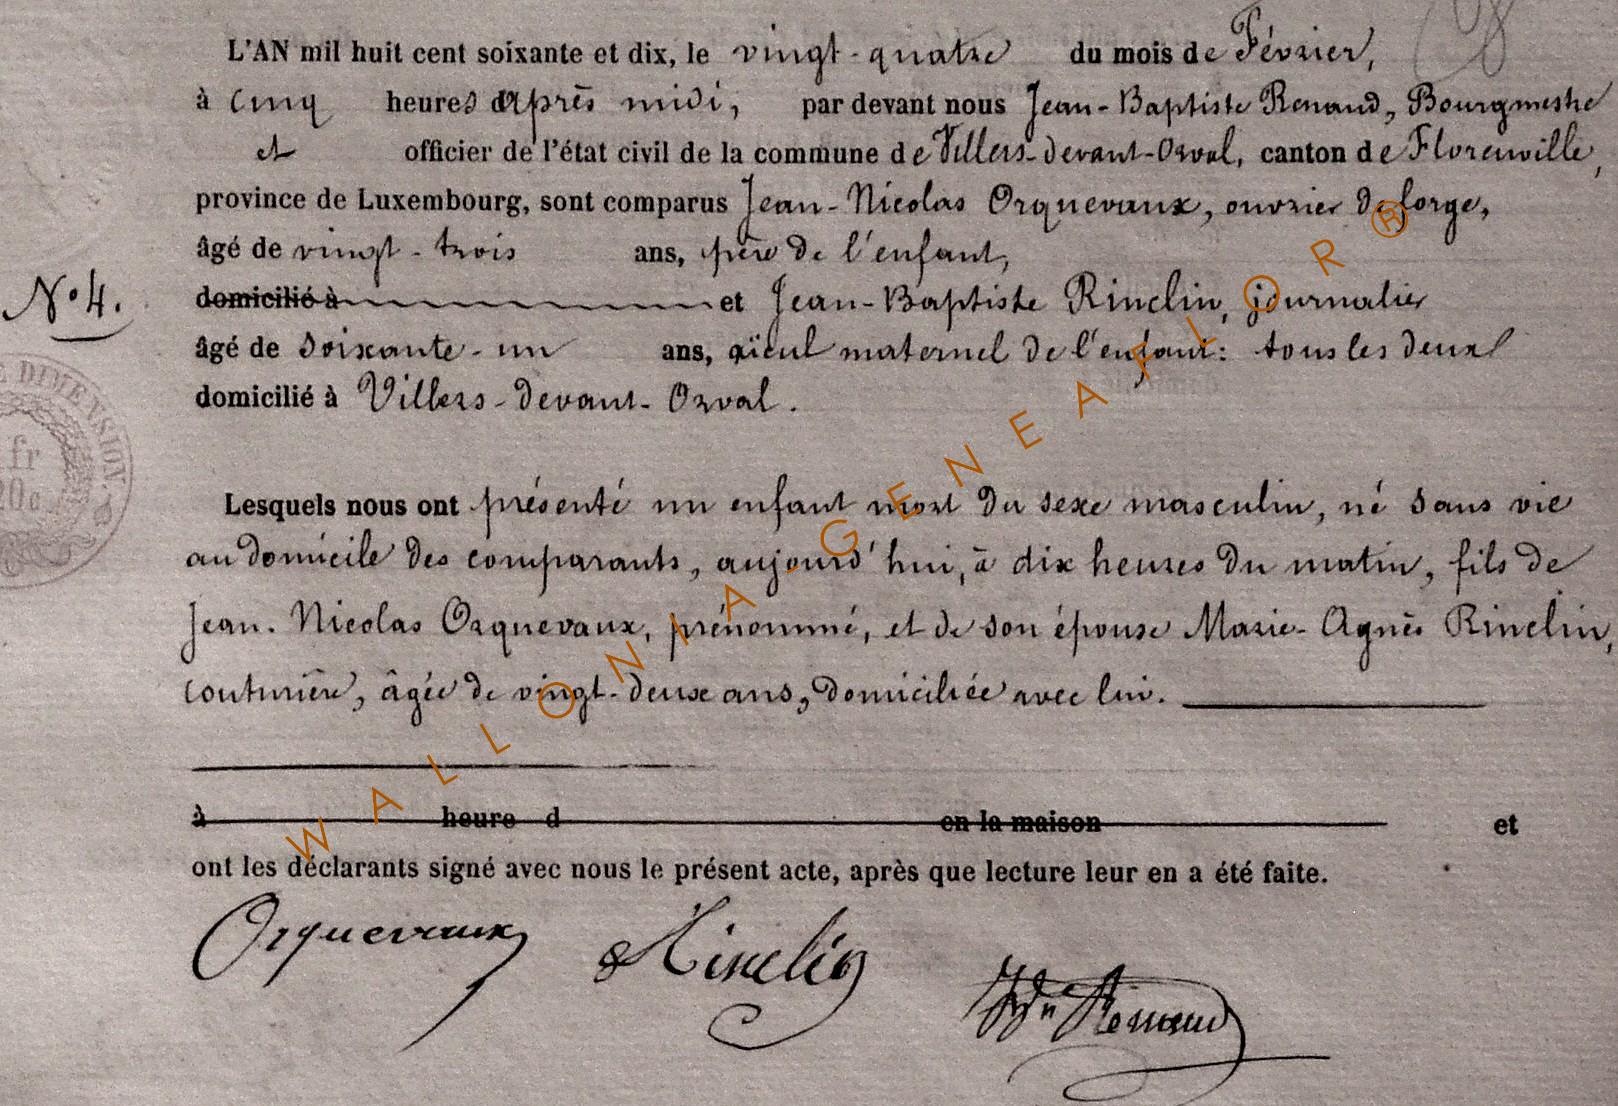 L'AN mil huit cent soixante et dix, le vingt-quatre du mois de Février,
à cinq heures d'après midi, par devant nous Jean-Baptiste Renaud, Bourgmestre
et officier de l'état civil de la commune de Villers-devant-Orval, canton de Florenville,
province de Luxembourg, sont comparus Jean-Nicolas Orquevaux, ouvrier de forge,
âgé de vingt-trois ans, père de l'enfant,
N° 4.
domicilié à et Jean-Baptiste Rinclin, journalier
âgé de soixante-un ans, aïeul maternel de l'enfant: tous les deux
domicilié à Villers-devant-Orval.
E DIMENSION
fr
20c
Lesquels nous ont présenté un enfant mort du sexe masculin, né sans vie
au domicile des comparants, aujourd'hui, à dix heures du matin, fils de
Jean-Nicolas Orquevaux, prénommé, et de son épouse Marie-Agnès Rinclin,
couturière, âgée de vingt-deux ans, domiciliée avec lui.
à heure d en la maison et
ont les déclarants signé avec nous le présent acte, après que lecture leur en a été faite.
Orquevaux Rinclin Renaud
WALLONIA-GENEAFLOR®